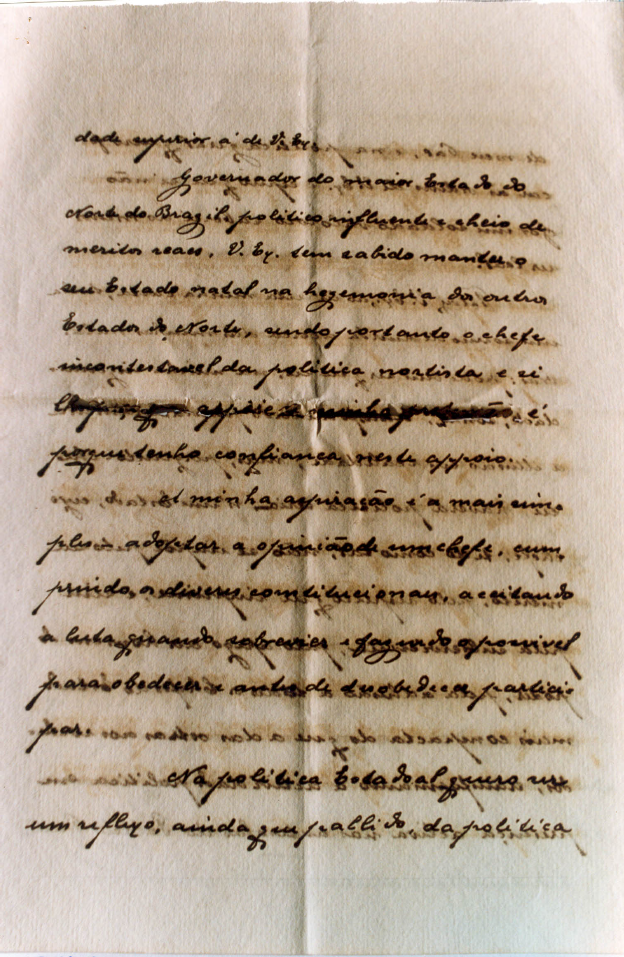 dade superior á de V. Ex.
Governador do maior Estado do
Norte do Brazil, politico influente e cheio de
meritos reaes, V. Ex. tem sabido manter o
seu Estado natal na hegemonia dos outros
Estados do Norte, sendo portanto o chefe
incontestavel da politica nortista e si
appoie a minha pretenção é
porque tenho confiança neste appoio.
A minha aspiração é a mais sim-
ples: adoptar a opinião de um chefe, cum
prindo os deveres constitucionaes, acceitando
a luta quando sobrevier e fazendo o possivel
para obedecer e antes de desobedecer partici-
par.
Na politica Estadoal quero ser
um reflexo, ainda que pallido, da politica